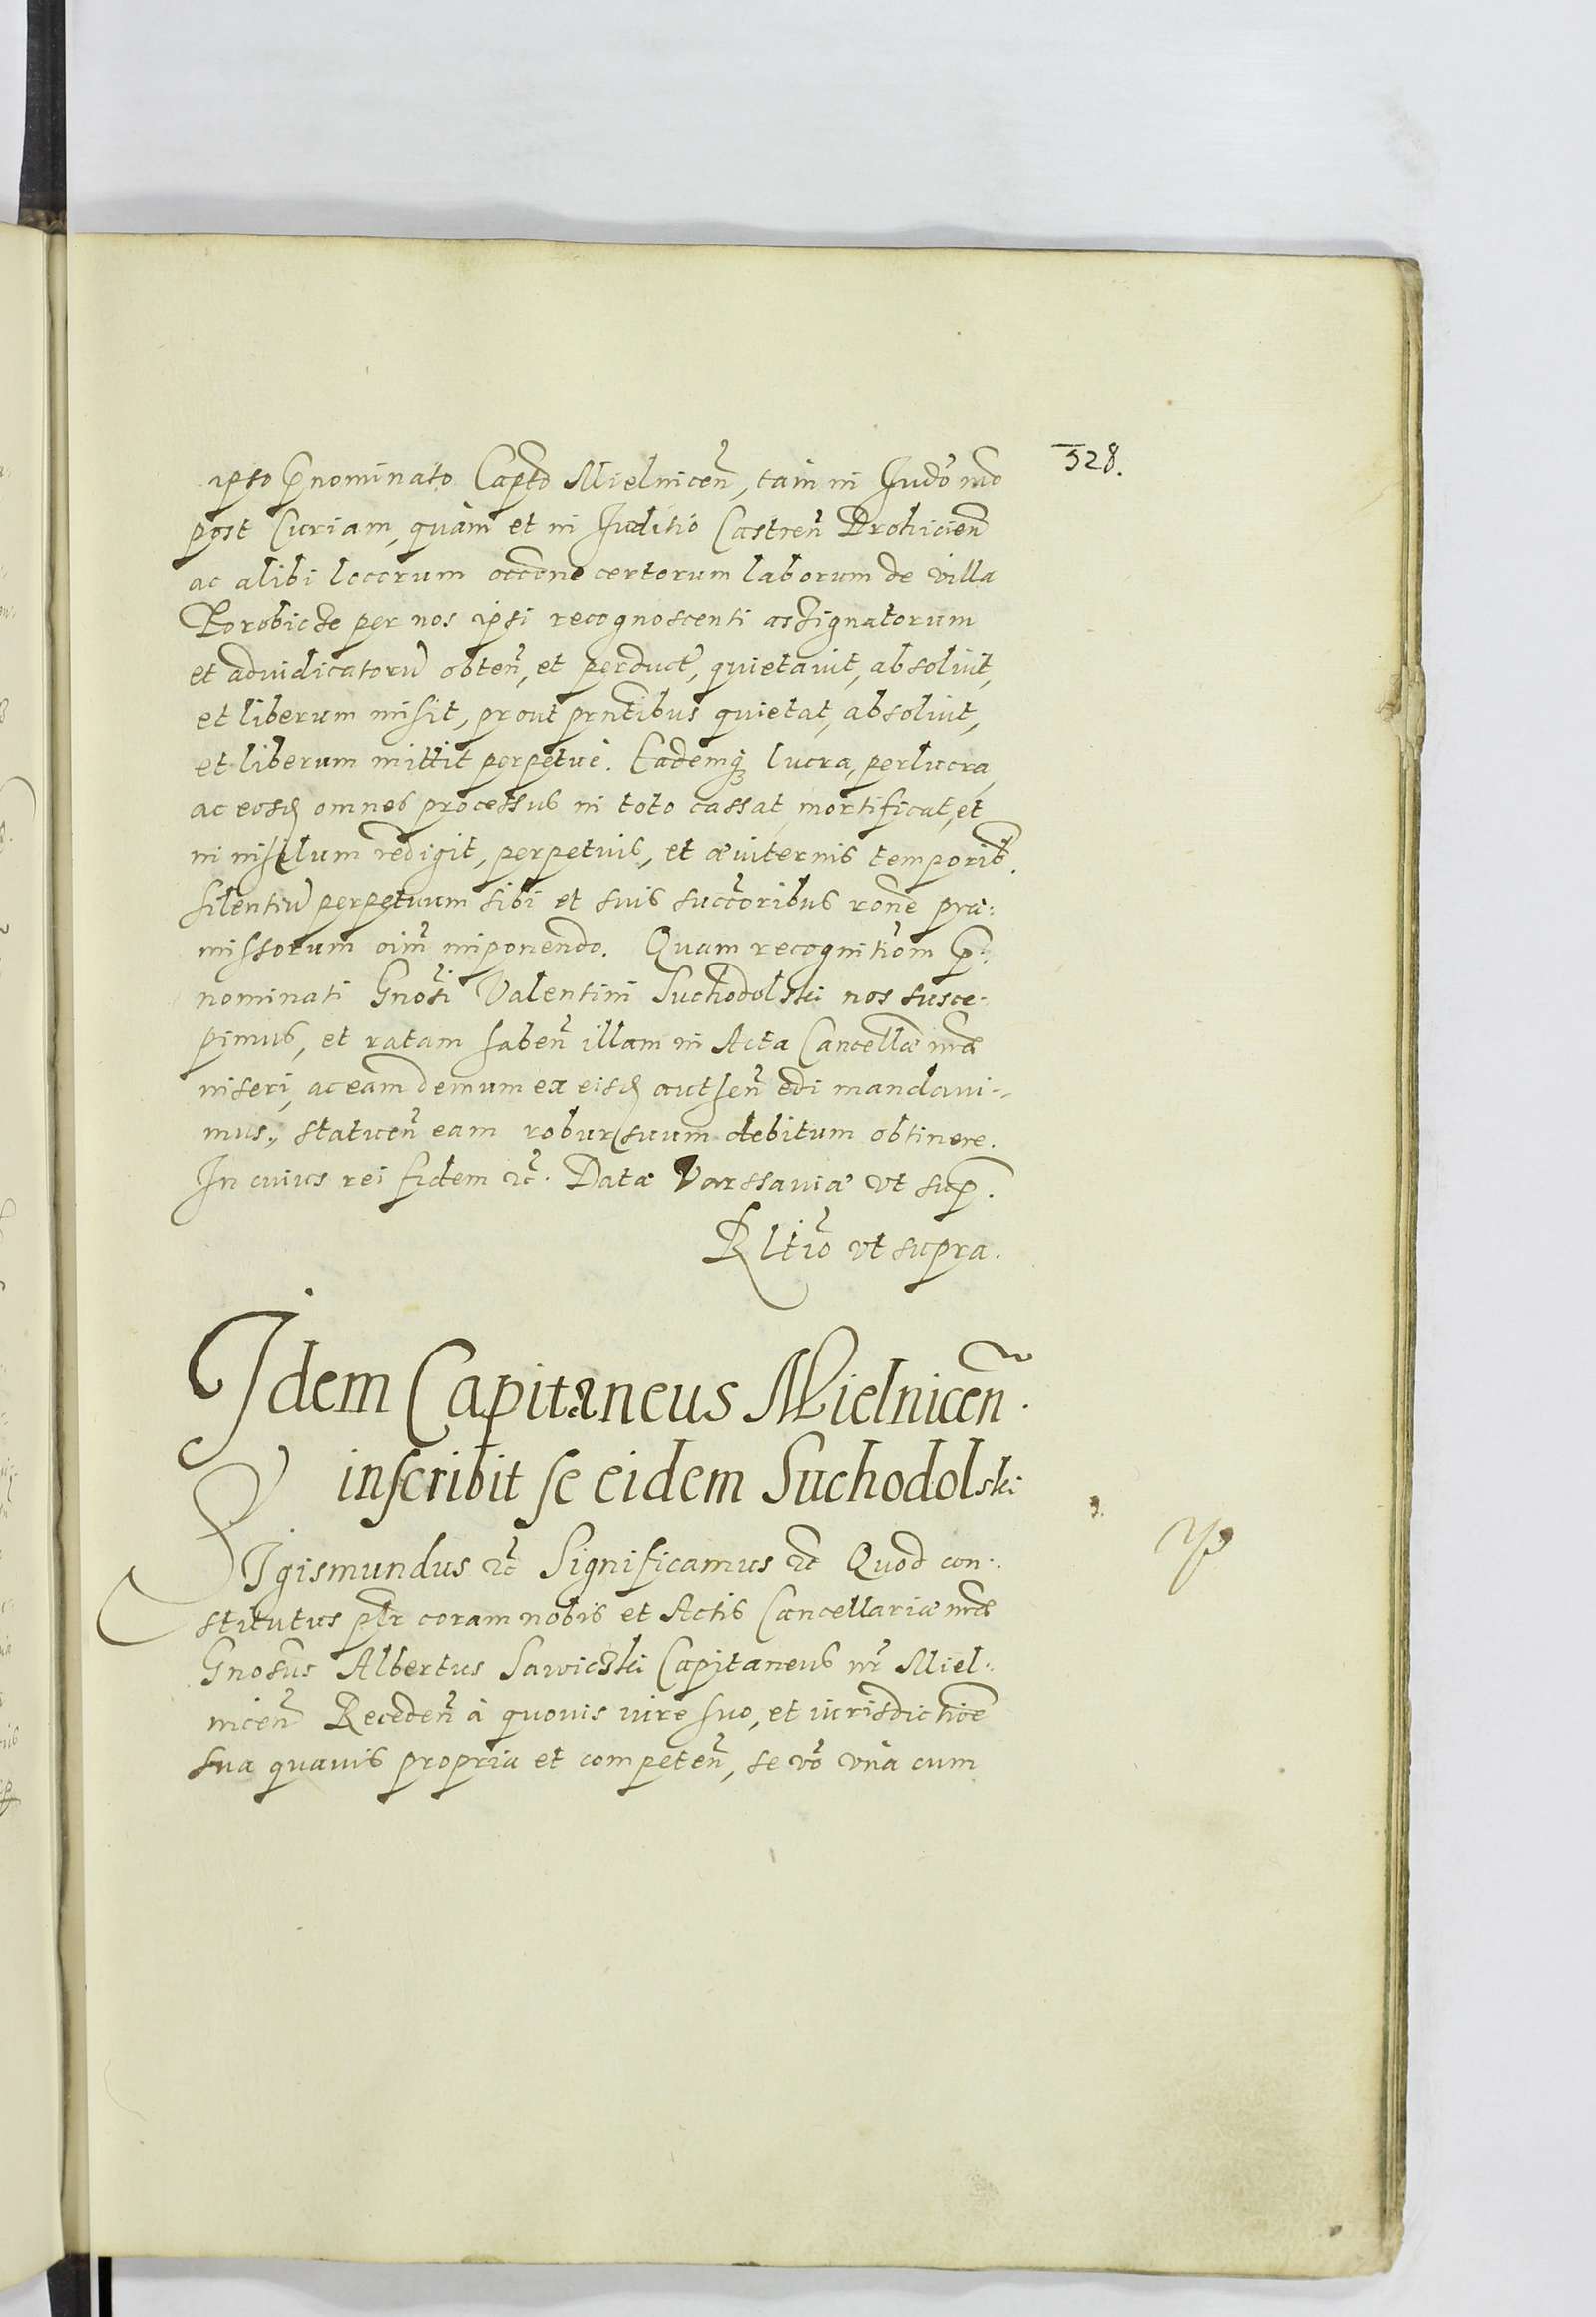 528.
ipso p̄nominato Captō Mielniceñ, tam in Iudō nrō
post Curiam, quàm et in Iuditio Castreñ Drohicieñ
ac alibi locorum occōne certorum laborum de villa
per nos ipsi recognoscenti assignatorum
et adiudicatorū obteñ, et perduct, quietauit, absoluit,
et liberum misit, prout prntibus quietat, absoluit,
et liberum mittit perpetuè. Eademq3 lucra, perlucra,
ac eosd omnes processus in toto cassat, mortificat, et
in nihilum redigit, perpetuis, et æuiternis temporib.
silentiū perpetuum sibi et suis succoribus rōne præ:
missorum oim̄ imponendo. Quam recognitiom p̄:
nominati Gnosi Valentini Suchodolski nos susce:
pimus, et ratam habeñ illam in Acta Cancellæ nræ
inseri, ac eam demum ex eisd autheñ edi mandaui:
mus, statueñ eam robur suum debitum obtinere.
In cuius rei fidem etc. Datæ Varssauiæ vt sup.
Rltio vt supra.
Idem Capitaneus Mielniceñ.
inscribit se eidem Suchodolski
Sigismundus etc Significamus etc Quod con:
stitutus pltr coram nobis et Actis Cancellariæ nræ
Gnosus Albertus Sawicski Capitaneus nr Miel:
niceñ Recedeñ à quouis iure suo, et iurisdictioe
sua quauis propria et competeñ, se vō vnà cum